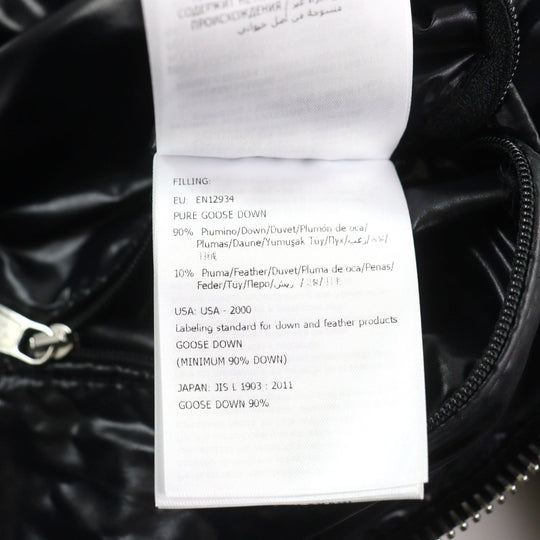 СОДЕРЖИТ НЕ
ПРОИСХОЖДЕНИЯ/
منسوجة من أصل حيواني
FILLING:
EU: EN12934
PURE GOOSE DOWN
90% Piumino/Down/Duvet/Plumón de oca/
Plumas/Daune/Yumuşak Tüy/Пух/زغب/
10% Piuma/Feather/Duvet/Pluma de oca/Penas/
Feder/Tüy/Перо/ريش/
USA: USA - 2000
Labeling standard for down and feather products
GOOSE DOWN
(MINIMUM 90% DOWN)
JAPAN: JIS L 1903 : 2011
GOOSE DOWN 90%